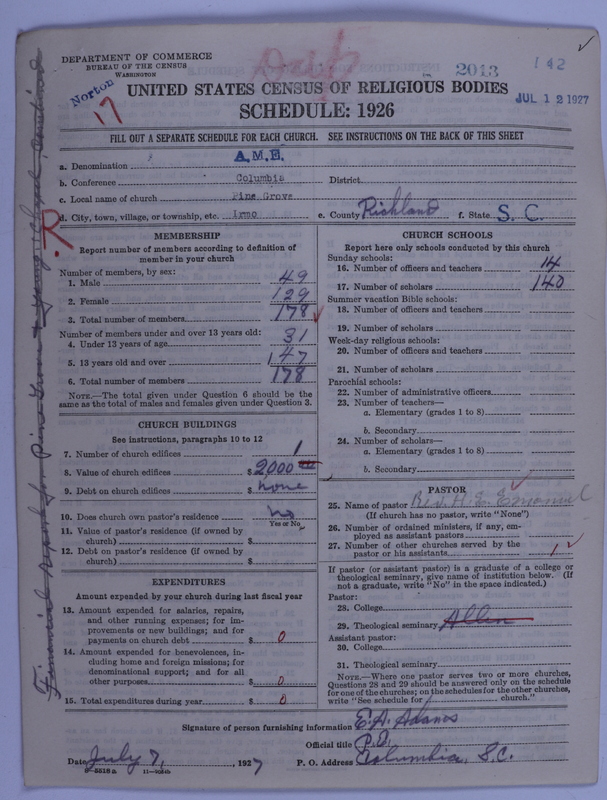 DEPARTMENT OF COMMERCE
BUREAU OF THE CENSUS
WASHINGTON
Norton
17
2013
142
JUL 12 1927
UNITED STATES CENSUS OF RELIGIOUS BODIES
SCHEDULE: 1926
FILL OUT A SEPARATE SCHEDULE FOR EACH CHURCH. SEE INSTRUCTIONS ON THE BACK OF THIS SHEET
a. Denomination A.M.E.
b. Conference Columbia District
c. Local name of church Pine Grove
d. City, town, village, or township, etc. Irmo e. County Richland f. State S. C.
R
MEMBERSHIP
Report number of members according to definition of
member in your church
Number of members, by sex:
1. Male 49
2. Female 129
3. Total number of members 178
Number of members under and over 13 years old:
4. Under 13 years of age 31
5. 13 years old and over 147
6. Total number of members 178
NOTE.—The total given under Question 6 should be the
same as the total of males and females given under Question 3.
CHURCH BUILDINGS
See instructions, paragraphs 10 to 12
7. Number of church edifices 1
8. Value of church edifices $ 2000
9. Debt on church edifices $ none
10. Does church own pastor's residence no
Yes or No
11. Value of pastor's residence (if owned by
church) $
12. Debt on pastor's residence (if owned by
church) $
EXPENDITURES
Amount expended by your church during last fiscal year
13. Amount expended for salaries, repairs,
and other running expenses; for im-
provements or new buildings; and for
payments on church debt $ 0
14. Amount expended for benevolences, in-
cluding home and foreign missions; for
denominational support; and for all
other purposes $ 0
15. Total expenditures during year $ 0
CHURCH SCHOOLS
Report here only schools conducted by this church
Sunday schools:
16. Number of officers and teachers 14
17. Number of scholars 140
Summer vacation Bible schools:
18. Number of officers and teachers
19. Number of scholars
Week-day religious schools:
20. Number of officers and teachers
21. Number of scholars
Parochial schools:
22. Number of administrative officers
23. Number of teachers—
a. Elementary (grades 1 to 8)
b. Secondary
24. Number of scholars—
a. Elementary (grades 1 to 8)
b. Secondary
PASTOR
25. Name of pastor Rev. H. E. Emanuel
(If church has no pastor, write "None")
26. Number of ordained ministers, if any, em-
ployed as assistant pastors
27. Number of other churches served by the
pastor or his assistants 1
If pastor (or assistant pastor) is a graduate of a college or
theological seminary, give name of institution below. (If
not a graduate, write "No" in the space indicated.)
Pastor:
28. College
29. Theological seminary Allen
Assistant pastor:
30. College
31. Theological seminary
NOTE.—Where one pastor serves two or more churches,
Questions 28 and 29 should be answered only on the schedule
for one of the churches; on the schedules for the other churches,
write "See schedule for church."
Signature of person furnishing information E. A. Adams
Official title P. E.
Date July 7, 1927 P. O. Address Columbia, S.C.
Financial Report for Pine Grove &amp; Young Chapel combined